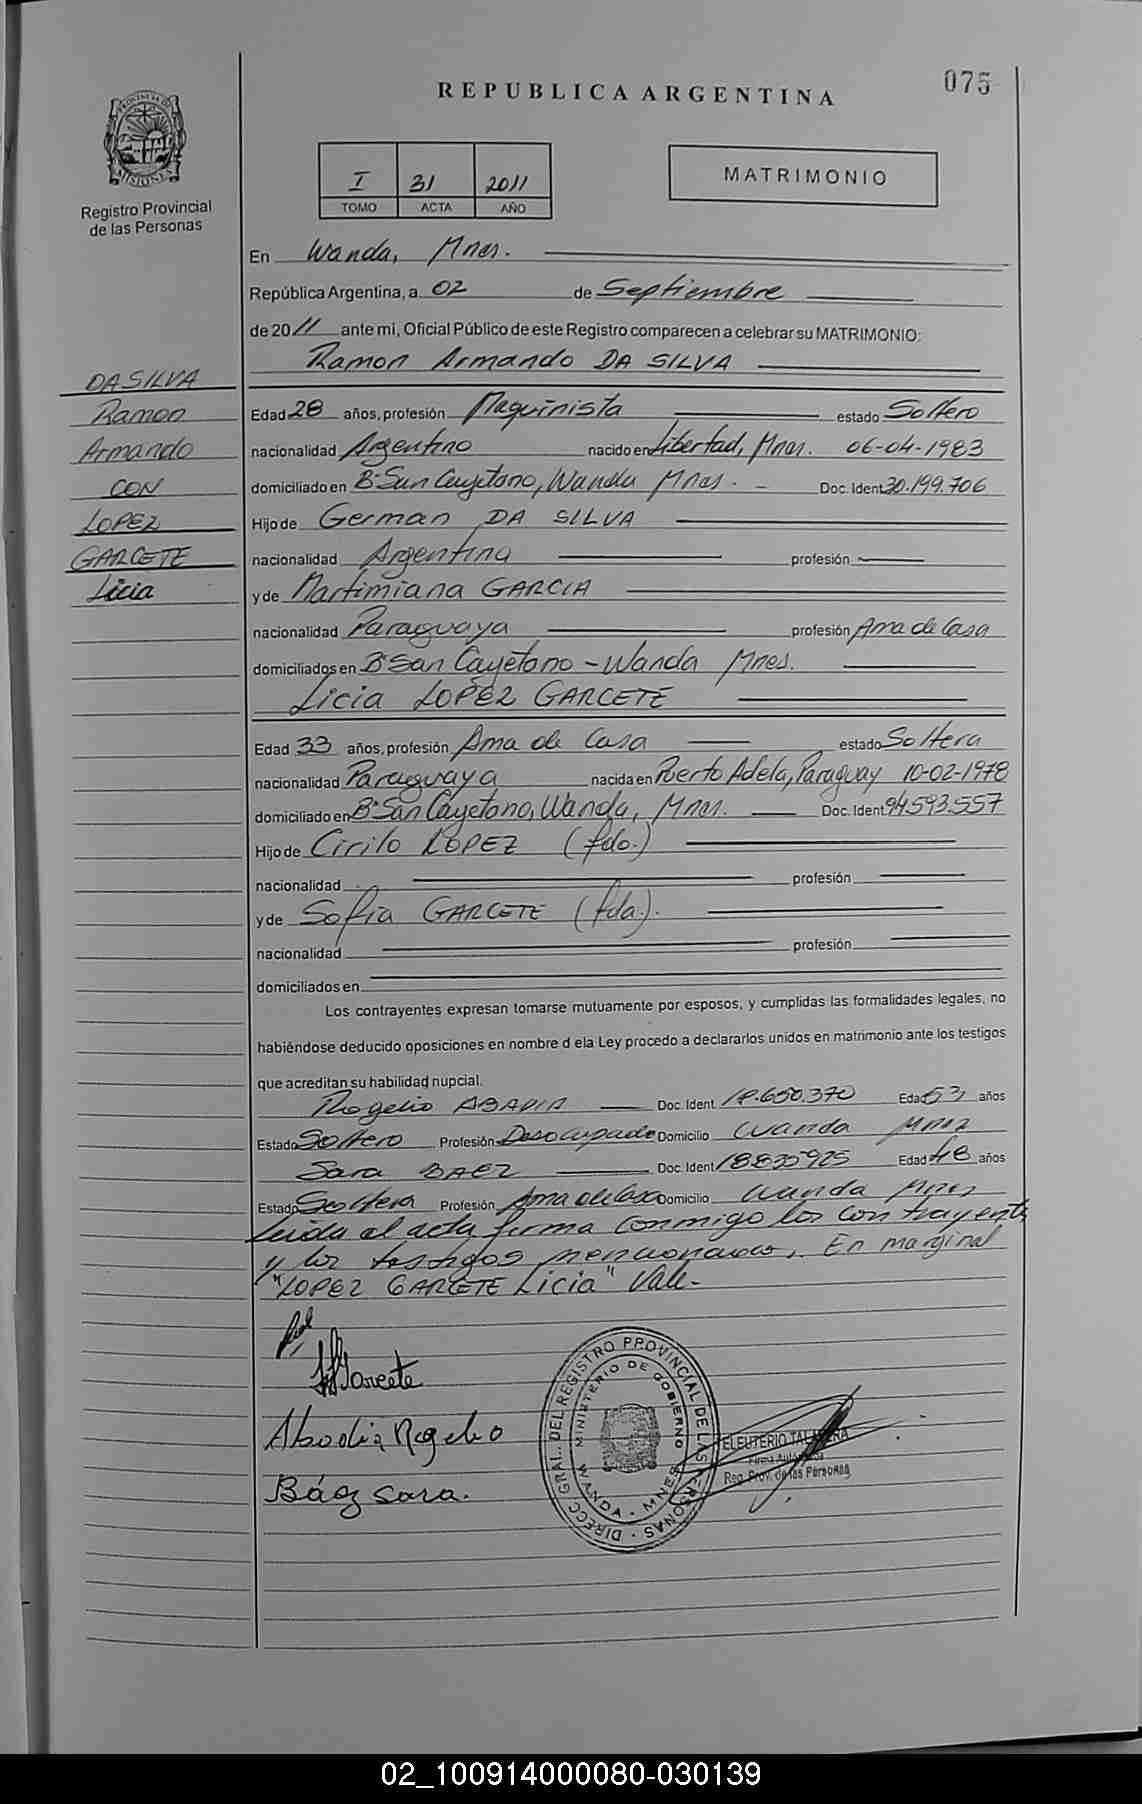 075
REPUBLICA ARGENTINA
PROVINCIA DE MISIONES
Registro Provincial
de las Personas
I 31 2011
TOMO ACTA AÑO
MATRIMONIO
En Wanda, Mnes.
República Argentina, a 02 de Septiembre
de 2011 ante mi, Oficial Público de este Registro comparecen a celebrar su MATRIMONIO:
Ramon Armando DA SILVA
DA SILVA
Ramon
Armando
CON
LOPEZ
GARCETE
Licia
Edad 28 años, profesión Maquinista estado Soltero
nacionalidad Argentino nacido en Libertad, Mnes. 06-04-1983
domiciliado en Bº San Cayetano, Wanda Mnes. - Doc. Ident 30.199.706
Hijo de German DA SILVA
nacionalidad Argentina profesión
y de Martimiana GARCIA
nacionalidad Paraguaya profesión Ama de Casa
domiciliados en Bº San Cayetano - Wanda Mnes.
Licia LOPEZ GARCETE
Edad 33 años, profesión Ama de Casa estado Soltera
nacionalidad Paraguaya nacida en Puerto Adela, Paraguay 10-02-1978
domiciliado en Bº San Cayetano, Wanda, Mnes. Doc. Ident 94.593.557
Hijo de Cirilo LOPEZ (fdo.)
nacionalidad profesión
y de Sofia GARCETE (fda.).
nacionalidad profesión
domiciliados en
Los contrayentes expresan tomarse mutuamente por esposos, y cumplidas las formalidades legales, no
habiéndose deducido oposiciones en nombre d ela Ley procedo a declararlos unidos en matrimonio ante los testigos
que acreditan su habilidad nupcial.
Rogelio ABADIA Doc. Ident .650.370 Edad 53 años
Estado Soltero Profesión Desocupado Domicilio Wanda Mnes
Sara BAEZ Doc. Ident 18835925 Edad 48 años
Estado Soltera Profesión Ama de Casa Domicilio Wanda Mnes
Leida al acta firma conmigo los contrayentes
y los testigos mencionados. En marginal
"LOPEZ GARCETE Licia" Vale-
Garcete
Abadia Rogelio
Báez Sara.
DIRECC. GRAL. DEL REGISTRO PROVINCIAL DE LAS PERSONAS
MINISTERIO DE GOBIERNO
WANDA - MNES
ELEUTERIO TALAVERA
Firma Autorizada
Reg. Prov. de las Personas
02_100914000080-030139